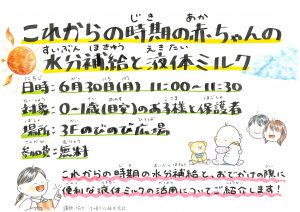 これからの時期の赤ちゃんの
水分補給と液体ミルク
日時:6月30日(月) 11:00〜11:30
対象:0〜1歳(目安)のお子様と保護者
場所:3Fのびのび広場
参加費:無料
これからの時期の水分補給と、おでかけの際に
便利な液体ミルクの活用についてご紹介します!